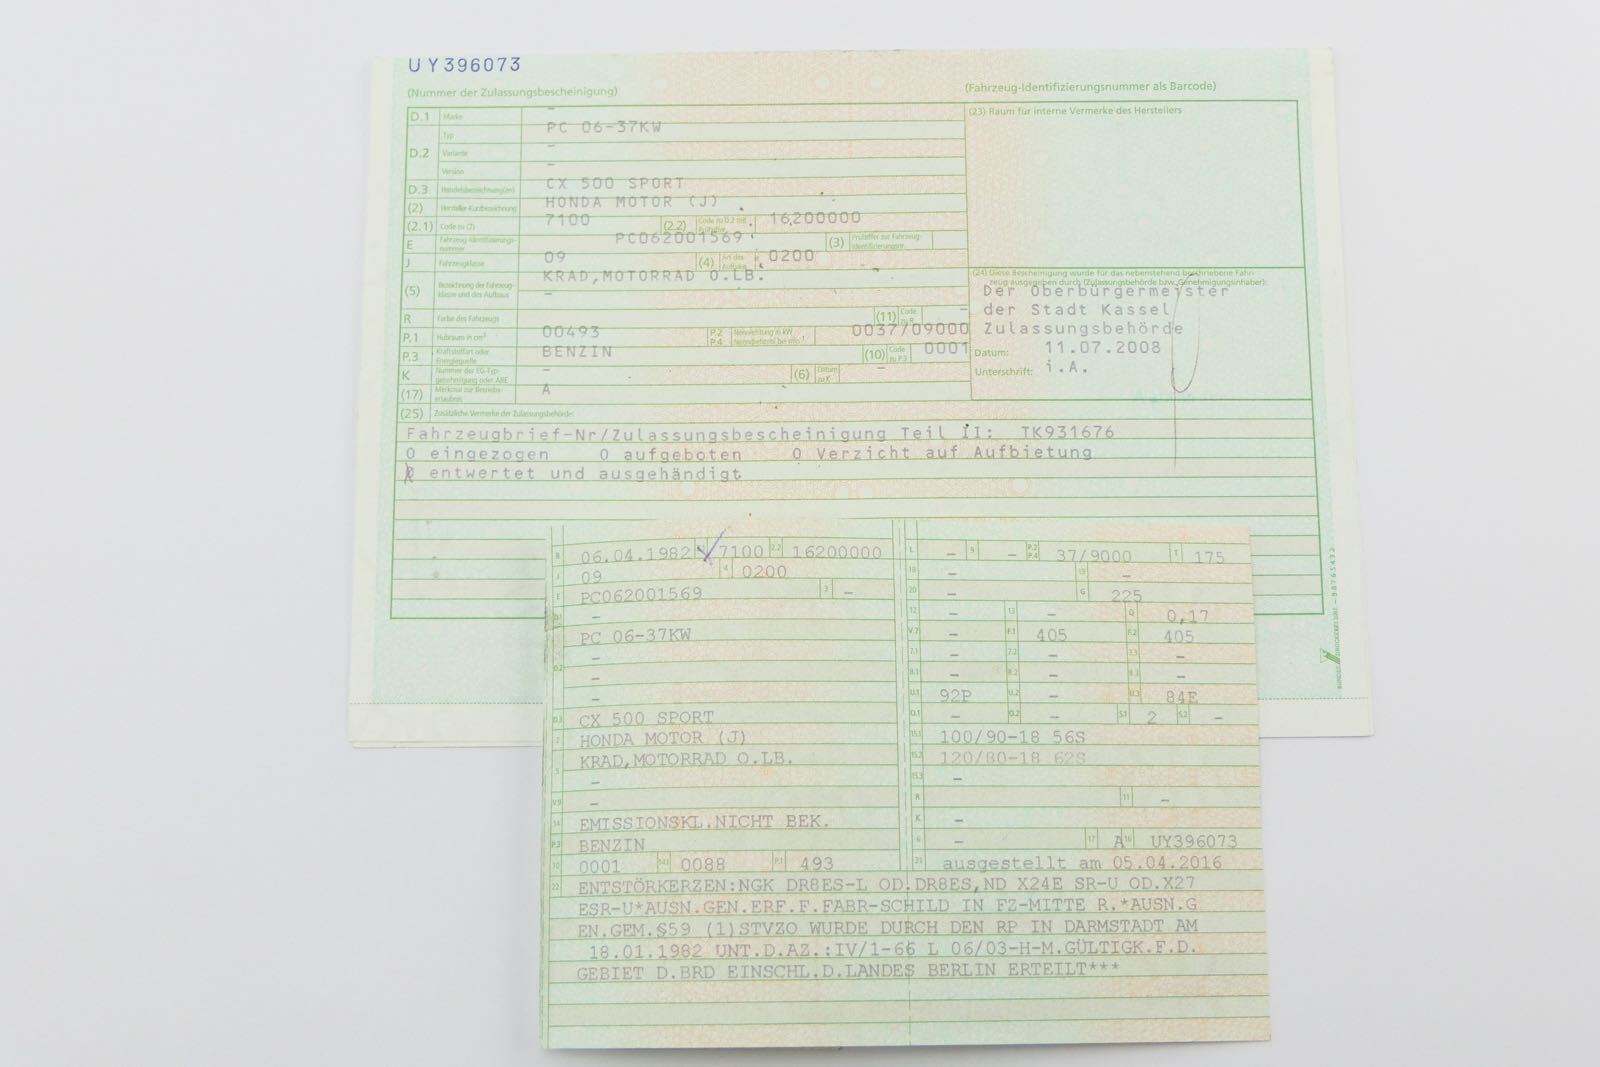 UY396073
(Nummer der Zulassungsbescheinigung)
(Fahrzeug-Identifizierungsnummer als Barcode)
D.1 Marke –
(23) Raum für interne Vermerke des Herstellers
D.2 Typ PC 06-37KW
Variante –
Version –
D.3 Handelsbezeichnung(en) CX 500 SPORT
(2) Hersteller-Kurzbezeichnung HONDA MOTOR (J)
(2.1) Code zu (2) 7100 (2.2) Code zu D.2 mit Prüfziffer 16200000
E Fahrzeug-Identifizierungs-nummer PC062001569 (3) Prüfziffer zur Fahrzeug-Identifizierungsnr.
J Fahrzeugklasse 09 (4) Art des Aufbaus 0200
(5) Bezeichnung der Fahrzeug-klasse und des Aufbaus KRAD,MOTORRAD O.LB.
–
(24) Diese Bescheinigung wurde für das nebenstehend beschriebene Fahr-
zeug ausgegeben durch (Zulassungsbehörde bzw. Genehmigungsinhaber):
Der Oberbürgermeister
der Stadt Kassel
Zulassungsbehörde
Datum: 11.07.2008
Unterschrift: i.A.
R Farbe des Fahrzeugs (11) Code zu R –
P.1 Hubraum in cm³ 00493 P.2 P.4 Nennleistung in kW Nenndrehzahl bei min⁻¹ 0037/09000
P.3 Kraftstoffart oder Energiequelle BENZIN (10) Code zu P.3 0001
K Nummer der EG-Typ-genehmigung oder ABE – (6) Datum zu K –
(17) Merkmal zur Betriebs-erlaubnis A
(25) Zusätzliche Vermerke der Zulassungsbehörde:
Fahrzeugbrief-Nr/Zulassungsbescheinigung Teil II: TK931676
O eingezogen O aufgeboten O Verzicht auf Aufbietung
entwertet und ausgehändigt
BUNDESDRUCKEREI
B 06.04.1982 7100 2.2 16200000
J 09 4 0200
E PC062001569 3 –
D.1 –
PC 06-37KW
D.2 –
–
–
D.3 CX 500 SPORT
2 HONDA MOTOR (J)
5 KRAD,MOTORRAD O.LB.
–
V.9 –
14 EMISSIONSKL.NICHT BEK.
P.3 BENZIN
10 0001 14.1 0088 P.1 493
L – 9 – P.2 P.4 37/9000 T 175
18 – 19 –
20 – G 225
12 – 13 – Q 0,17
V.7 – F.1 405 F.2 405
7.1 – 7.2 – 7.3 –
8.1 – 8.2 – 8.3 –
U.1 92P U.2 – U.3 84E
O.1 – O.2 – S.1 2 S.2 –
15.1 100/90-18 56S
15.2 120/80-18 62S
15.3 –
R 11 –
K –
6 – 17 A 16 UY396073
21 ausgestellt am 05.04.2016
22 ENTSTÖRKERZEN:NGK DR8ES-L OD.DR8ES,ND X24E SR-U OD.X27
ESR-U*AUSN.GEN.ERF.F.FABR-SCHILD IN FZ-MITTE R.*AUSN.G
EN.GEM.§59 (1)STVZO WURDE DURCH DEN RP IN DARMSTADT AM
18.01.1982 UNT.D.AZ.:IV/1-66 L 06/03-H-M.GÜLTIGK.F.D.
GEBIET D.BRD EINSCHL.D.LANDES BERLIN ERTEILT***